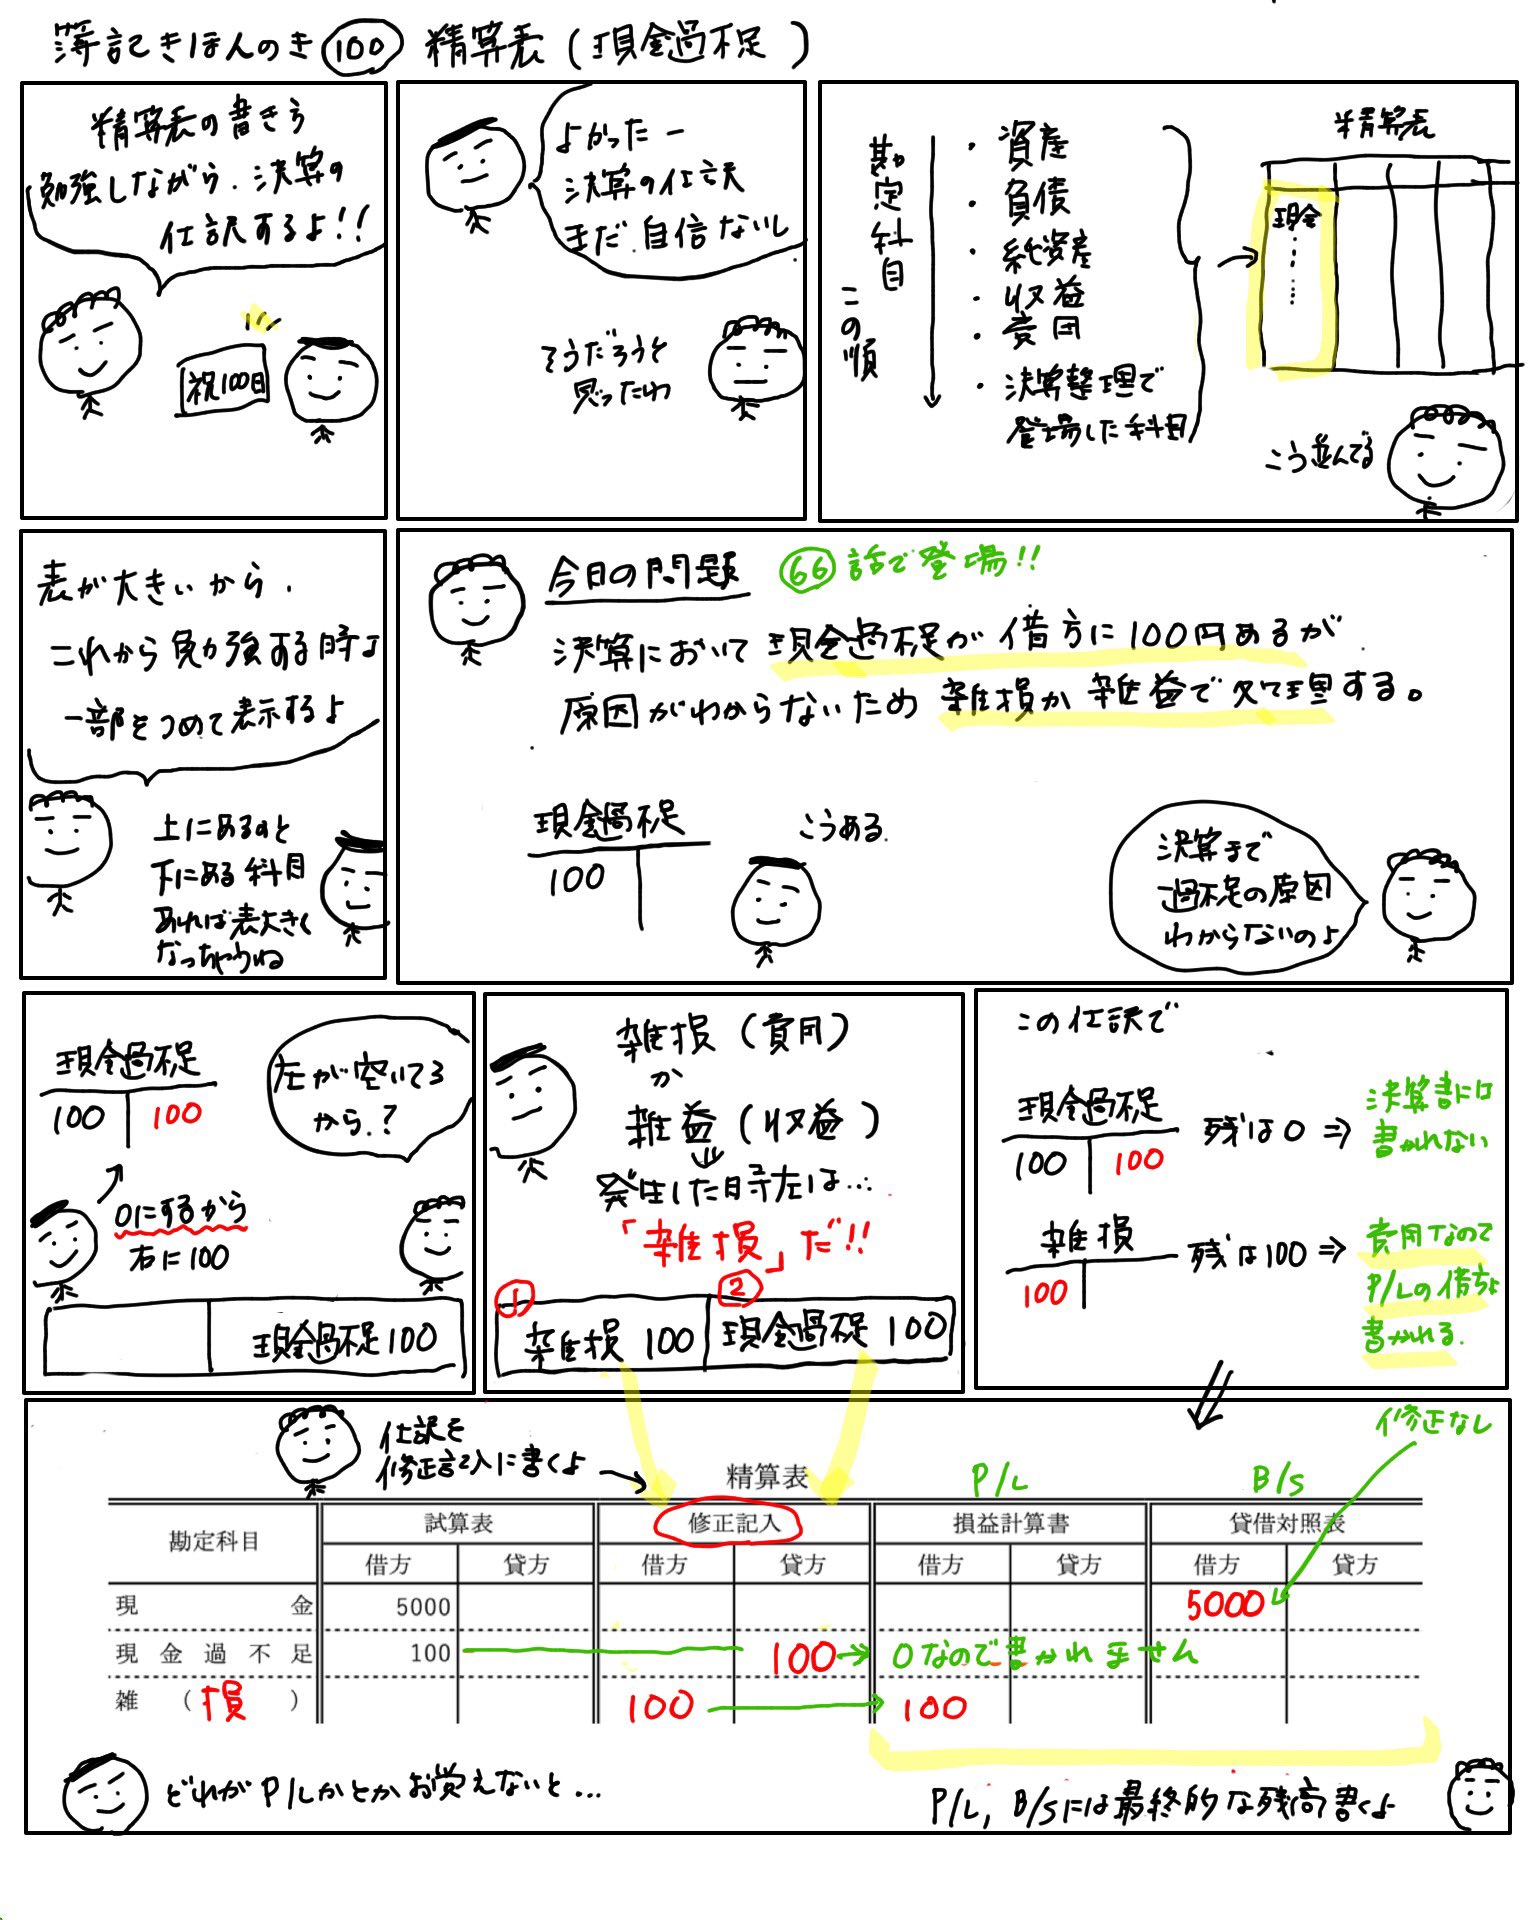 簿記きほんのき 100 精算表（現金過不足）
精算表の書き方
勉強しながら、決算の
仕訳するよ！！
祝100日
よかったー
決算の仕訳
まだ自信ないし
そうだろうと
思ったわ
勘定科目
この順
・資産
・負債
・純資産
・収益
・費用
・決算整理で
登場した科目
精算表
現金
こう並んでる
表が大きいから、
これから勉強する時は
一部をつめて表示するよ
上にあるのと
下にある科目
あれば表大きく
なっちゃうね
今日の問題 66話で登場!!
決算において現金過不足が借方に100円あるが
原因がわからないため雑損か雑益で処理する。
現金過不足
100
こうある
決算まで
過不足の原因
わからないのよ
現金過不足
100 100
左が空いてる
から？
0にするから
右に100
現金過不足100
雑損（費用）
か
雑益（収益）
発生した時左は…
「雑損」だ!!
① ②
雑損 100 現金過不足 100
この仕訳で
現金過不足
100 100
残は0⇒
決算書には
書かれない
雑損
100
残は100⇒
費用なので
P/Lの借方に
書かれる。
仕訳を
修正記入に書くよ
精算表 P/L B/S
修正なし
勘定科目 試算表 修正記入 損益計算書 貸借対照表
借方 貸方 借方 貸方 借方 貸方 借方 貸方
現金 5000 5000
現金過不足 100 100 0なので書かれません
雑（損） 100 100
どれがP/Lかとかお覚えないと…
P/L, B/Sには最終的な残高書くよ